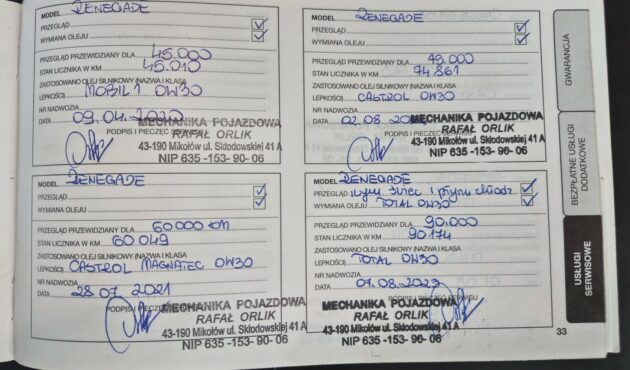 MODEL RENEGADE
PRZEGLĄD
WYMIANA OLEJU
PRZEGLĄD PRZEWIDZIANY DLA 45.000
STAN LICZNIKA W KM 45.010
ZASTOSOWANO OLEJ SILNIKOWY (NAZWA I KLASA
LEPKOŚCI) MOBIL 1 0W30
NR NADWOZIA
DATA 09.04.2020
MECHANIKA POJAZDOWA
PODPIS I PIECZĘĆ SERWISU
RAFAŁ ORLIK
43-190 Mikołów ul. Skłodowskiej 41 A
NIP 635 -153- 90- 06
MODEL RENEGADE
PRZEGLĄD
WYMIANA OLEJU
PRZEGLĄD PRZEWIDZIANY DLA 75.000
STAN LICZNIKA W KM 74.861
ZASTOSOWANO OLEJ SILNIKOWY (NAZWA I KLASA
LEPKOŚCI) CASTROL 0W30
NR NADWOZIA
DATA 02.08
MECHANIKA POJAZDOWA
PODPIS I PIECZĘĆ
RAFAŁ ORLIK
43-190 Mikołów ul. Skłodowskiej 41 A
NIP 635 -153- 90- 06
MODEL RENEGADE
PRZEGLĄD
WYMIANA OLEJU
PRZEGLĄD PRZEWIDZIANY DLA 60 000 km
STAN LICZNIKA W KM 60 049
ZASTOSOWANO OLEJ SILNIKOWY (NAZWA I KLASA
LEPKOŚCI) CASTROL MAGNATEC 0W30
NR NADWOZIA
DATA 28.07.2021
MECHANIKA POJAZDOWA
PODPIS I
RAFAŁ ORLIK
43-190 Mikołów ul. Skłodowskiej 41 A
NIP 635 -153- 90- 06
MODEL RENEGADE
PRZEGLĄD i płyn chłodz
WYMIANA OLEJU TOTAL 0W30
PRZEGLĄD PRZEWIDZIANY DLA 90.000
STAN LICZNIKA W KM 90.174
ZASTOSOWANO OLEJ SILNIKOWY (NAZWA I KLASA
LEPKOŚCI) TOTAL 0W30
NR NADWOZIA
DATA 07.08.2023
MECHANIKA POJAZDOWA
RAFAŁ ORLIK
43-190 Mikołów ul. Skłodowskiej 41 A
NIP 635 -153- 90- 06
33
GWARANCJA
BEZPŁATNE USŁUGI
DODATKOWE
USŁUGI
SERWISOWE